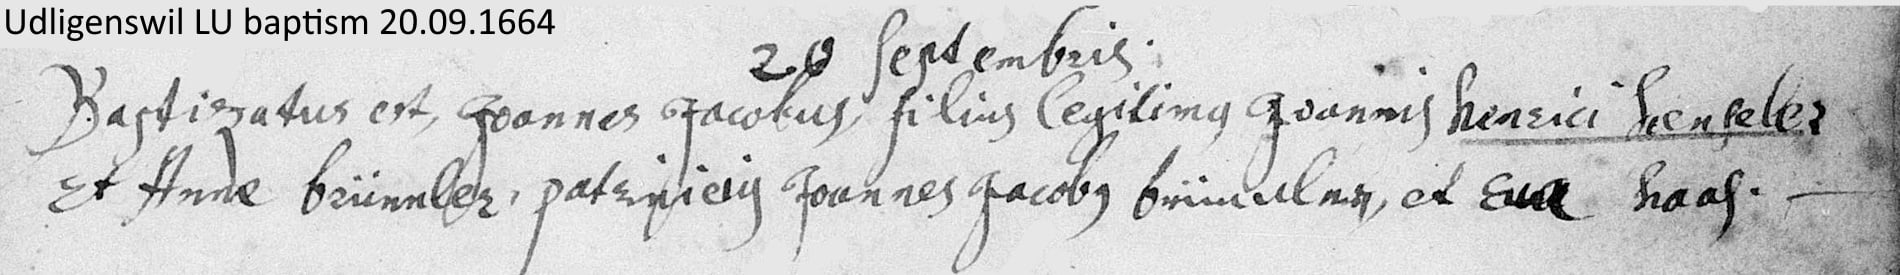 Udligenswil LU baptism 20.09.1664
20 Septembris.
Baptizatus est, Joannes Jacobus, filius legitimq Joannis henrici henseler
Et Annae brünnler, patrinieiq Joannes Jacobq brünnler, et Eua haas.